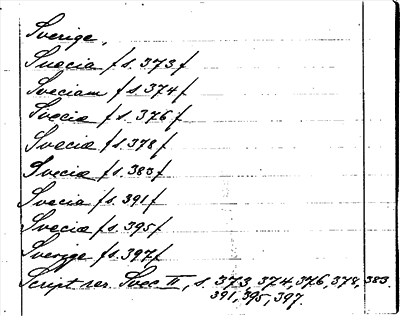 Sverige,
Suecia /s. 373/
Sveciam /s. 374/
Svecia /s. 376/
Svecia /s. 378/
Svecia /s. 383/
Svecia /s. 391/
Svecia /s. 395/
Sverige /s. 397/
Script rer. Svec. II, s. 373, 374, 376, 378, 383
391, 395, 397.